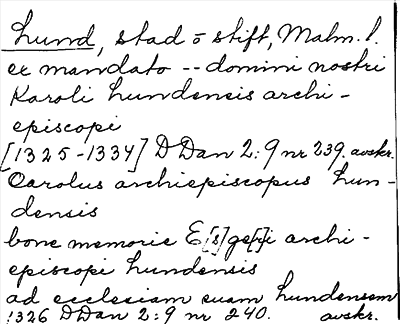 Lund, stad o stift, Malm. l.
ex mandato -- domini nostri
Karoli Lundensis archi-
episcopi
[1325-1334] D Dan 2:9 nr 239. avskr.
Carolus archiepiscopus Lun-
densis
bone memorie E[s]ge[r]i archi-
episcopi Lundensis
ad ecclesiam suam Lundensem
1326 D Dan 2:9 nr 240. avskr.